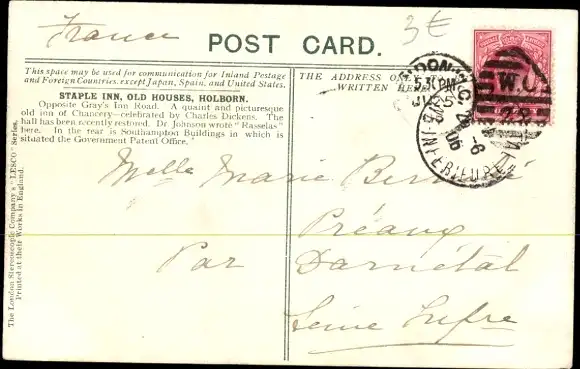 France
3€
POST CARD.
This space may be used for communication for Inland Postage
and Foreign Countries, except Japan, Spain, and United States.
STAPLE INN, OLD HOUSES, HOLBORN.
Opposite Gray's Inn Road. A quaint and picturesque
old inn of Chancery—celebrated by Charles Dickens. The
hall has been recently restored. Dr. Johnson wrote "Rasselas"
here. In the rear is Southampton Buildings in which is
situated the Government Patent Office.
THE ADDRESS
WRITTEN
W.C.
Melle Marie
Préaux
Par Darnétal
Seine Infre
The London Stereoscopic Company's "LESCO" Series.
Printed at their Works in England.